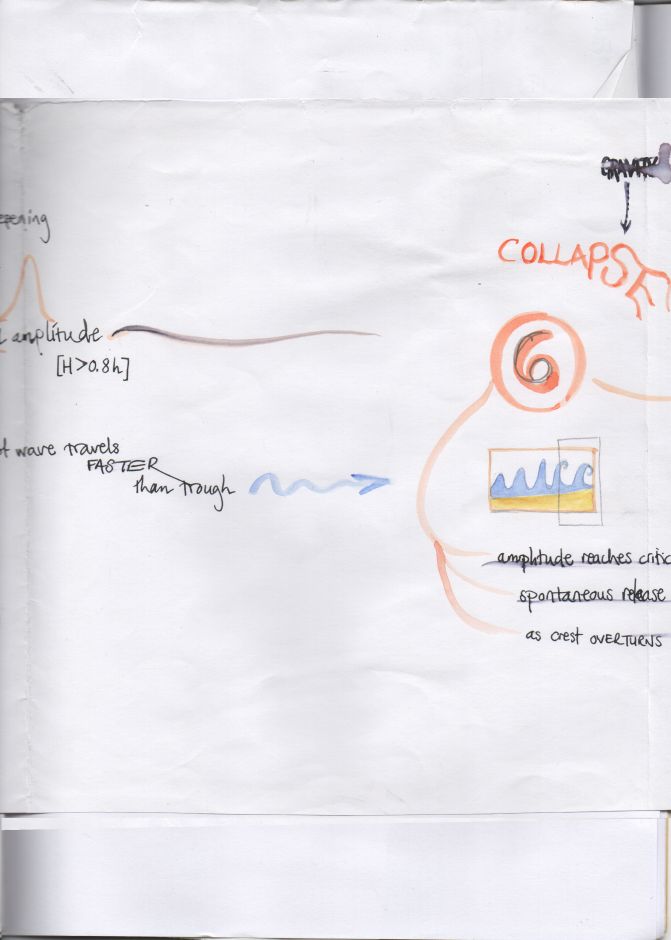 GRAVITY
epening
COLLAPSE
amplitude
[H>0.8h]
6
wave travels
FASTER
than trough
amplitude reaches critic
spontaneous release
as crest OVERTURNS